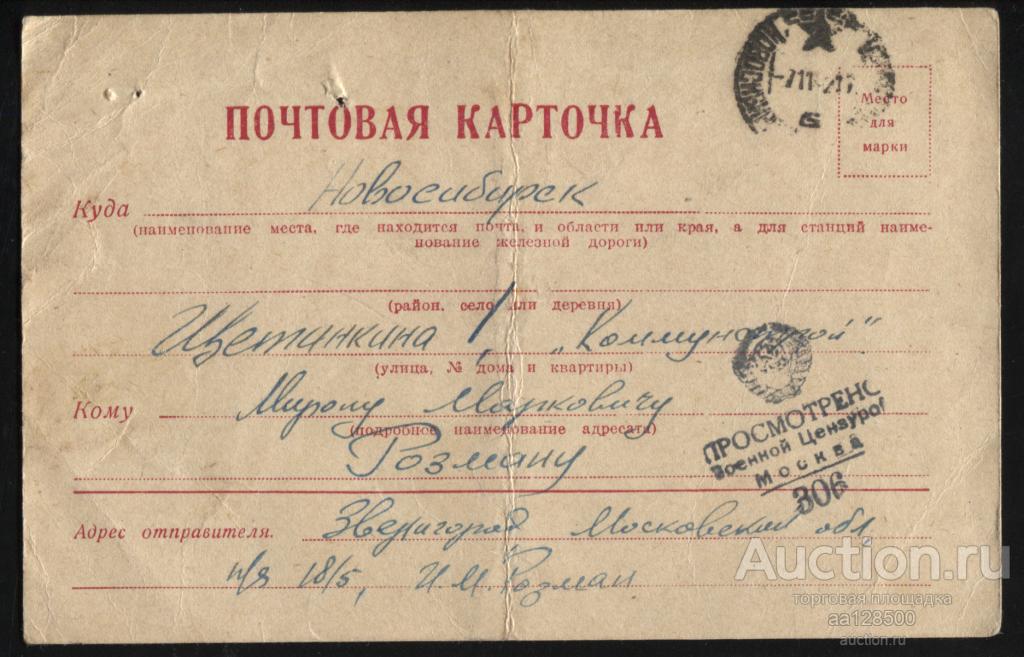 Место
для
марки
ПОЧТОВАЯ КАРТОЧКА
Куда Новосибирск
(наименование места, где находится почта, и области или края, а для станций наиме-
нование железной дороги)
(район, село или деревня)
Щетинкина 1, „Коммунстрой“
(улица, № дома и квартиры)
Кому Мирону Марковичу
(подробное наименование адресата)
Розману
ПРОСМОТРЕНО
Военной Цензурой
МОСКВА
306
Адрес отправителя. Звенигород Московской обл,
п/я 18/5, И.М. Розман
Auction.ru
торговая площадка
aa128500
auction.ru